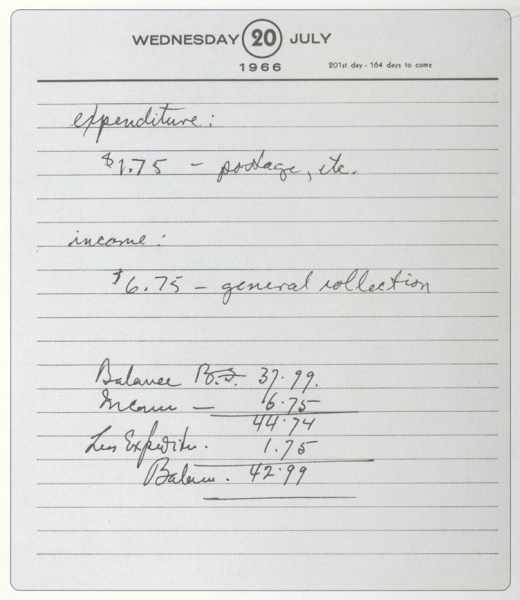 WEDNESDAY 20 JULY
1966 201st day - 164 days to come
expenditure:
$1.75 - postage, etc.
income:
$6.75 - general collection
Balance B.F. 37.99.
Income - 6.75
44.74
Less Expeditu. 1.75
Balan. 42.99